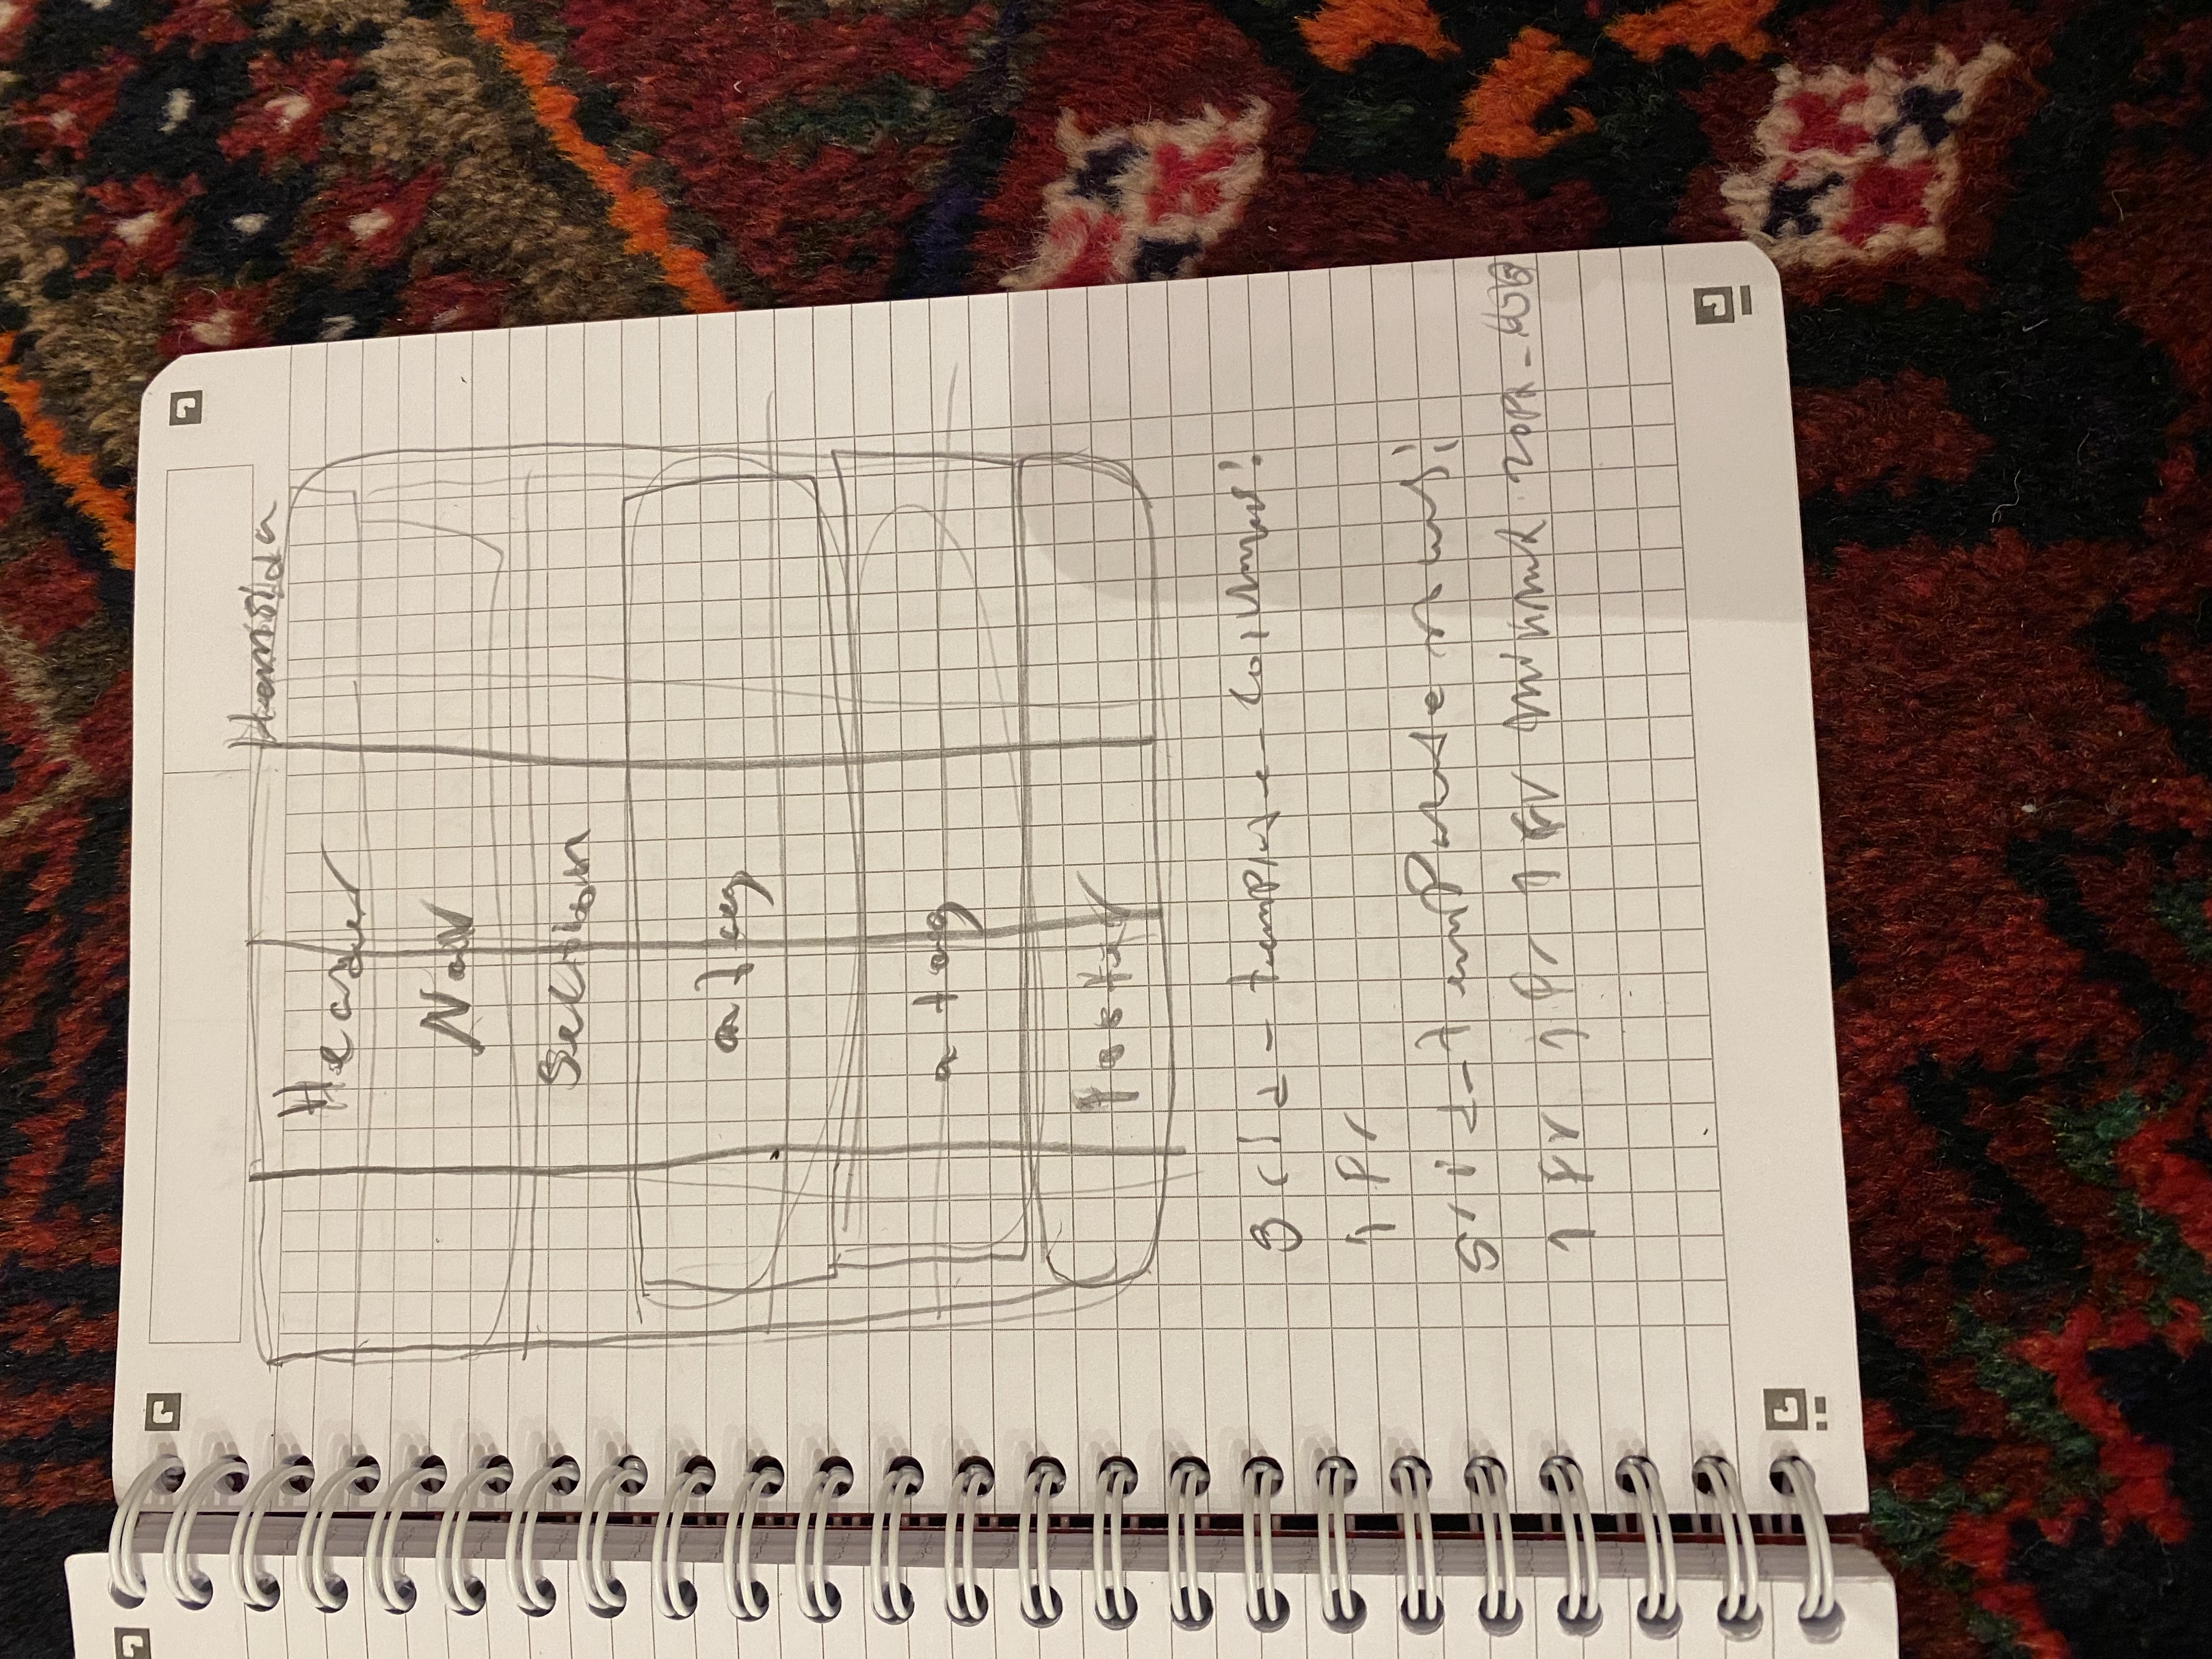 Hemsida
Header
Nav
Section
a tag
a tag
footer
grid-template-columns:
1 Fr
grid-template rows:
1 Fr 1 Fr 1 Fr minmax 20Px -